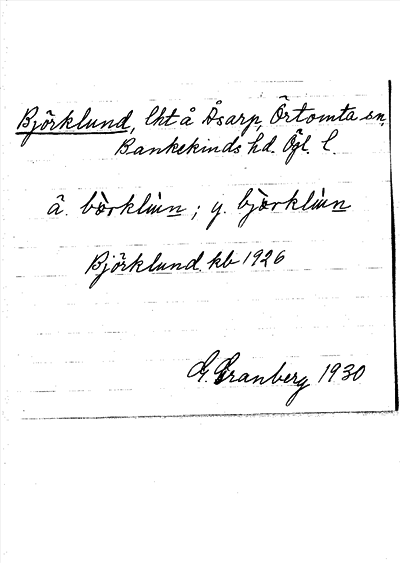 Björklund, lht å Åsarp, Örtomta sn,
Bankekinds hd. Ögl. l.
ä. bö̀rklùn; y. bjö̀rklùn
Björklund kb 1926
G. Granberg 1930